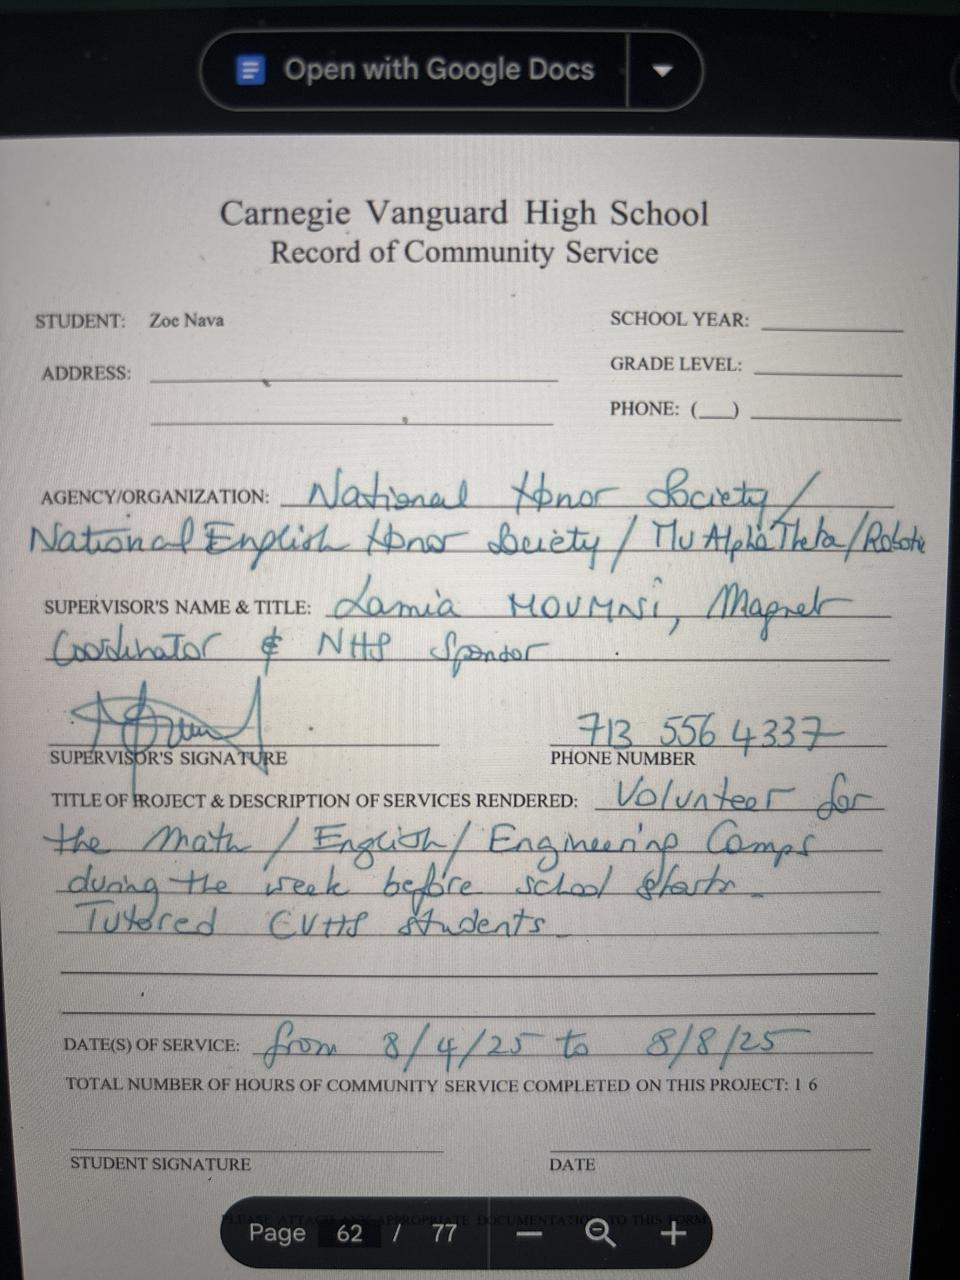 Open with Google Docs
Carnegie Vanguard High School
Record of Community Service
STUDENT: Zoe Nava
SCHOOL YEAR:
ADDRESS:
GRADE LEVEL:
PHONE: (__)
AGENCY/ORGANIZATION: National Honor Society /
National English Honor Society / Mu Alpha Theta / Robotic
SUPERVISOR'S NAME & TITLE: Lamia MOUMNI, Magnet
Coordinator & NHS Sponsor
SUPERVISOR'S SIGNATURE
713 556 4337
PHONE NUMBER
TITLE OF PROJECT & DESCRIPTION OF SERVICES RENDERED: Volunteer for
the Math / English / Engineering Camps
during the week before school starts.
Tutored CVHS students.
DATE(S) OF SERVICE: from 8/4/25 to 8/8/25
TOTAL NUMBER OF HOURS OF COMMUNITY SERVICE COMPLETED ON THIS PROJECT: 1 6
STUDENT SIGNATURE
DATE
PLEASE ATTACH ANY APPROPRIATE DOCUMENTATION TO THIS FORM
Page 62 / 77